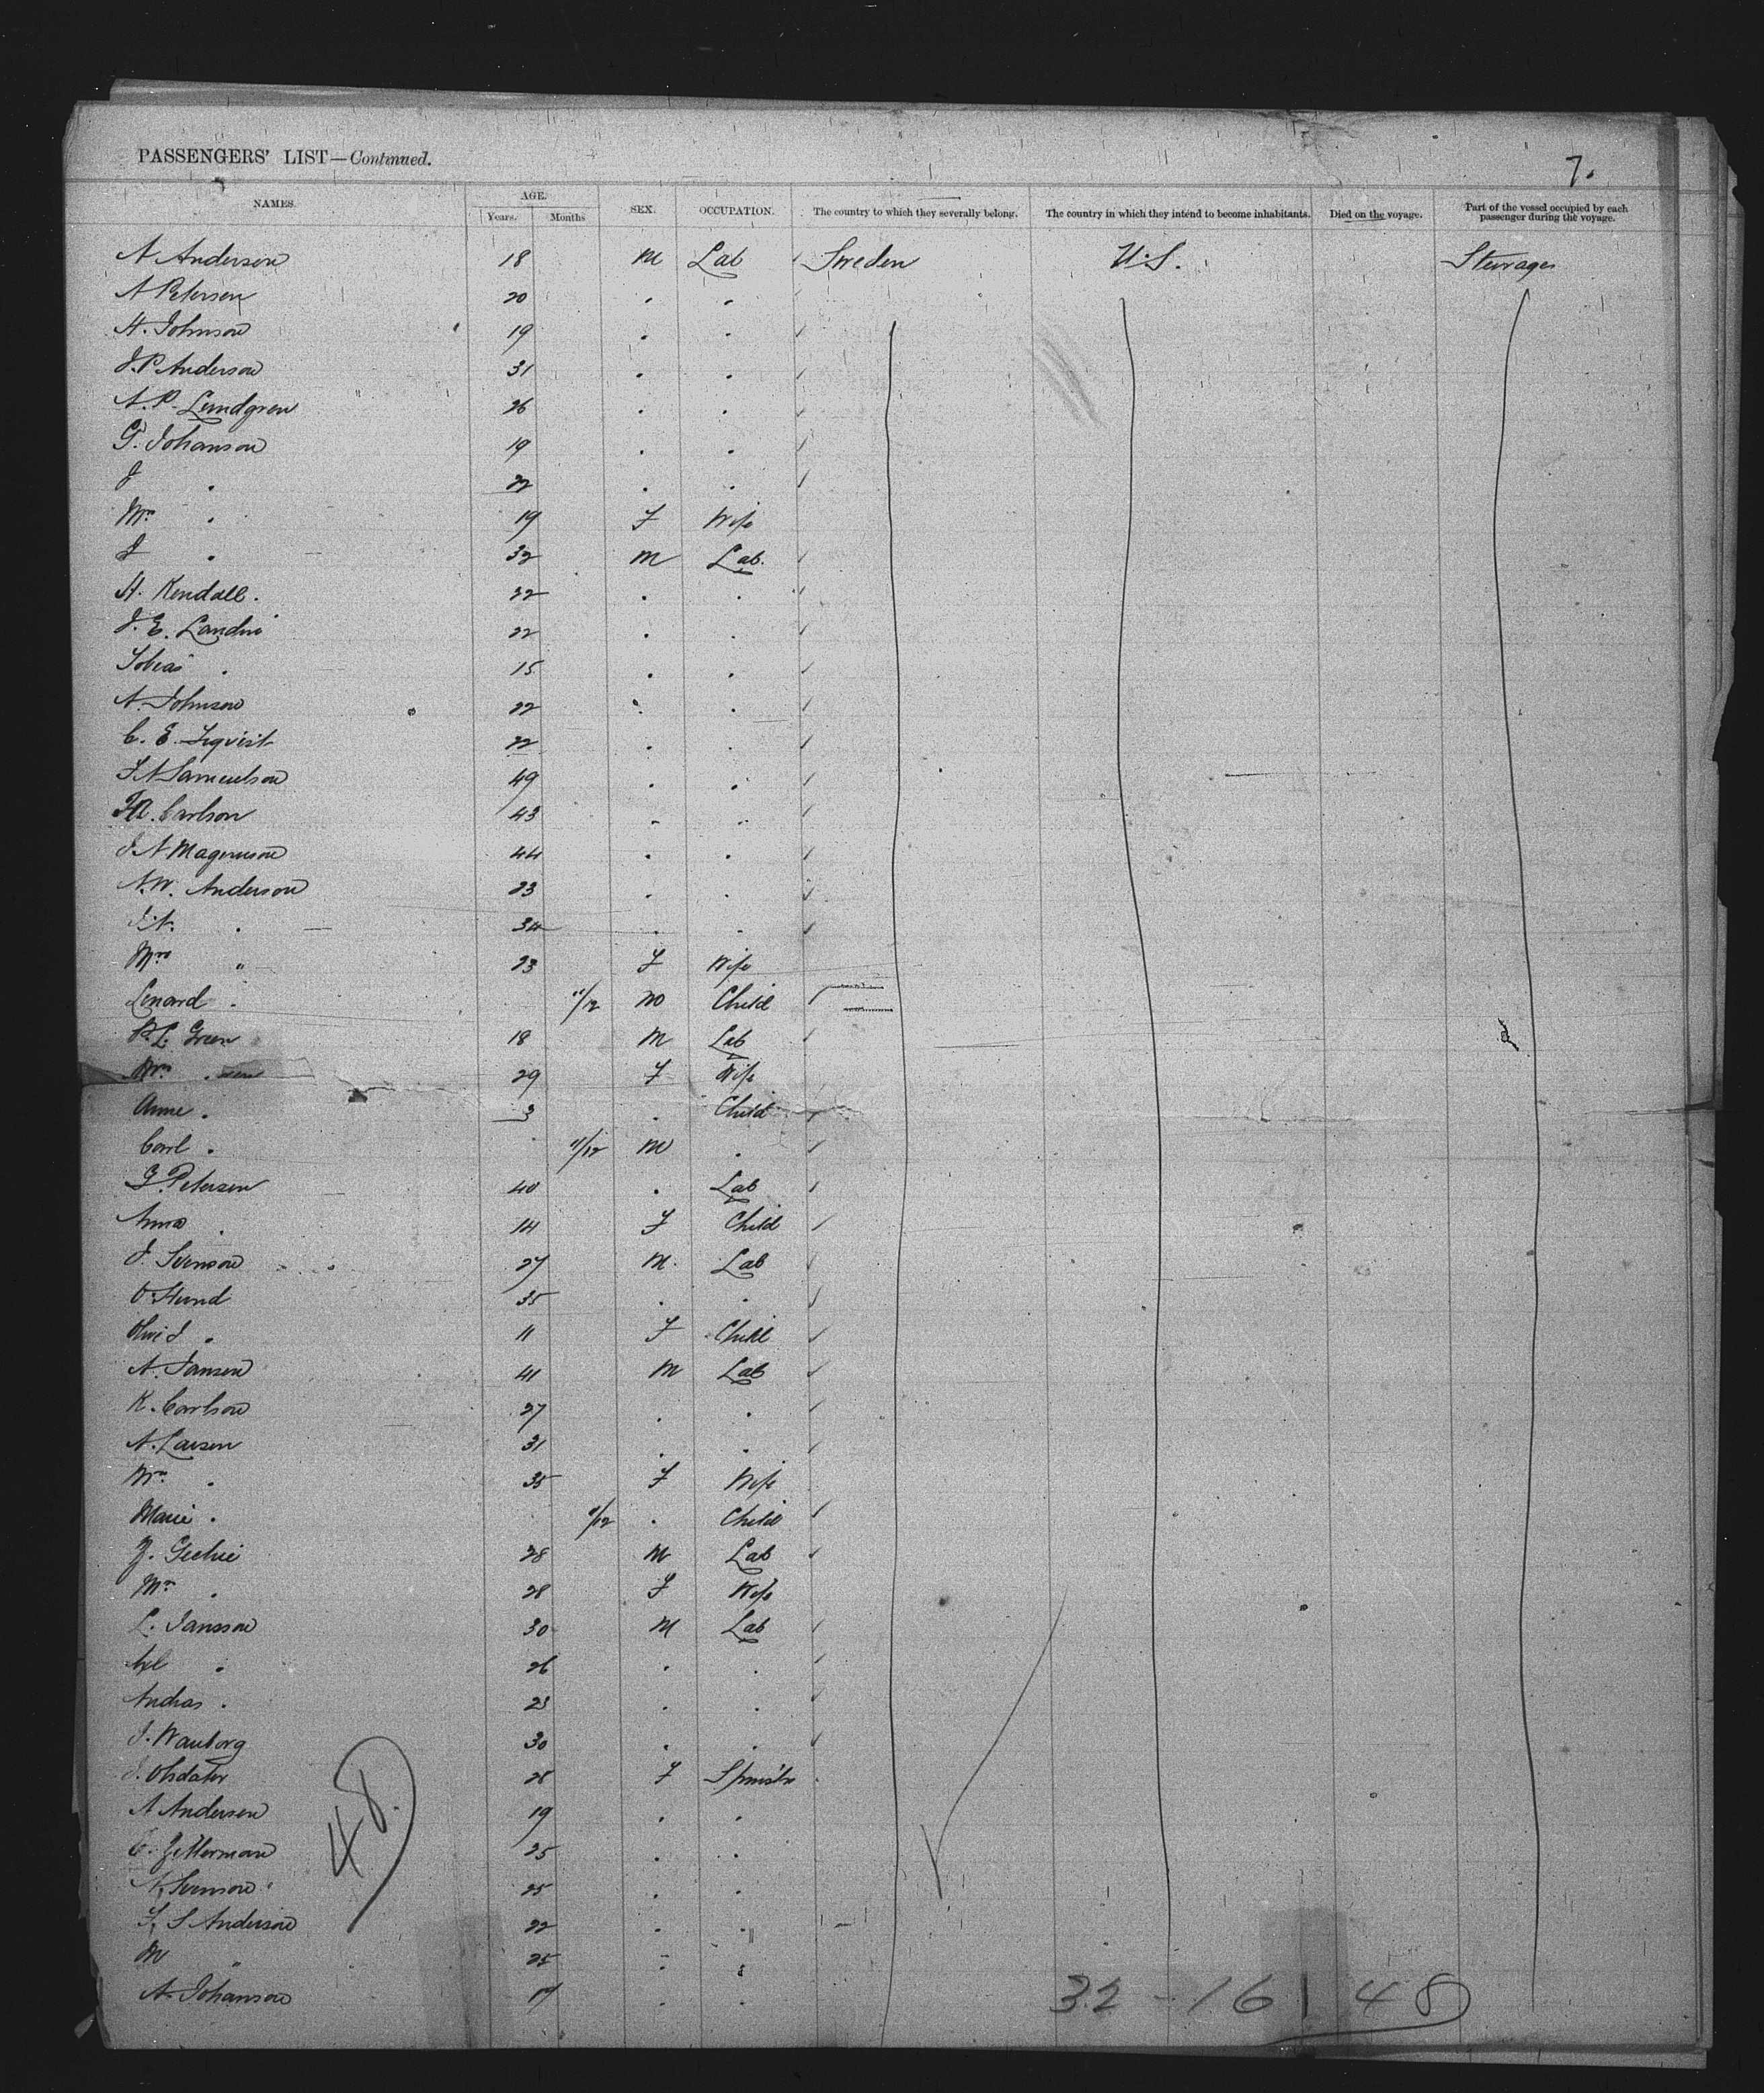 PASSENGERS' LIST—Continued.
7.
NAMES. AGE. Years. Months SEX. OCCUPATION. The country to which they severally belong. The country in which they intend to become inhabitants. Died on the voyage. Part of the vessel occupied by each passenger during the voyage.
A Anderson 18 M Lab Sweden U.S. Steerage
A Petersen 20 . .
A. Johnson 19 . .
J. P. Anderson 31 . .
A. P. Lundgren 26 . .
G. Johanson 19 . .
J . 22 . .
Mrs . 19 F Wife
J . 32 M Lab.
A. Kendall. 22 . .
J. E. Landin 22 . .
Tobias . 15 . .
A. Johnson 22 . .
C. E. 22 . .
J A Samuelson 49 . .
Carlson 43 . .
J A Magnuson 44 . .
A. W. Anderson 23 . .
. 34 . .
Mrs " 23 F Wife
Lenard . 11/12 M Child
Green 18 M Lab
Mrs . 29 F Wife
Anne . 3 . Child
Carl . 11/12 M .
G. Petersen 40 . Lab
Anna . 14 F Child
J. Svenson 27 M. Lab
O. Stund 35 . .
. 11 F Child
A. Jansen 41 M Lab
K. Carlson 27 . .
A. Larsen 31 . .
Mrs . 35 F Wife
Marie . /12 . Child
28 M Lab
Mrs . 28 F Wife
L. Jansson 30 M Lab
Axl . 26 . .
Andras . 23 . .
J. Wanborg 30 . .
J. Olsdater 28 F Spinster
A Anderson 19 . .
C. Zetterman 25 . .
A. Svenson 25 . .
J. S Anderson 22 . .
M " 25 . .
A. Johanson 17 . .
48.
32 - 16 | 48